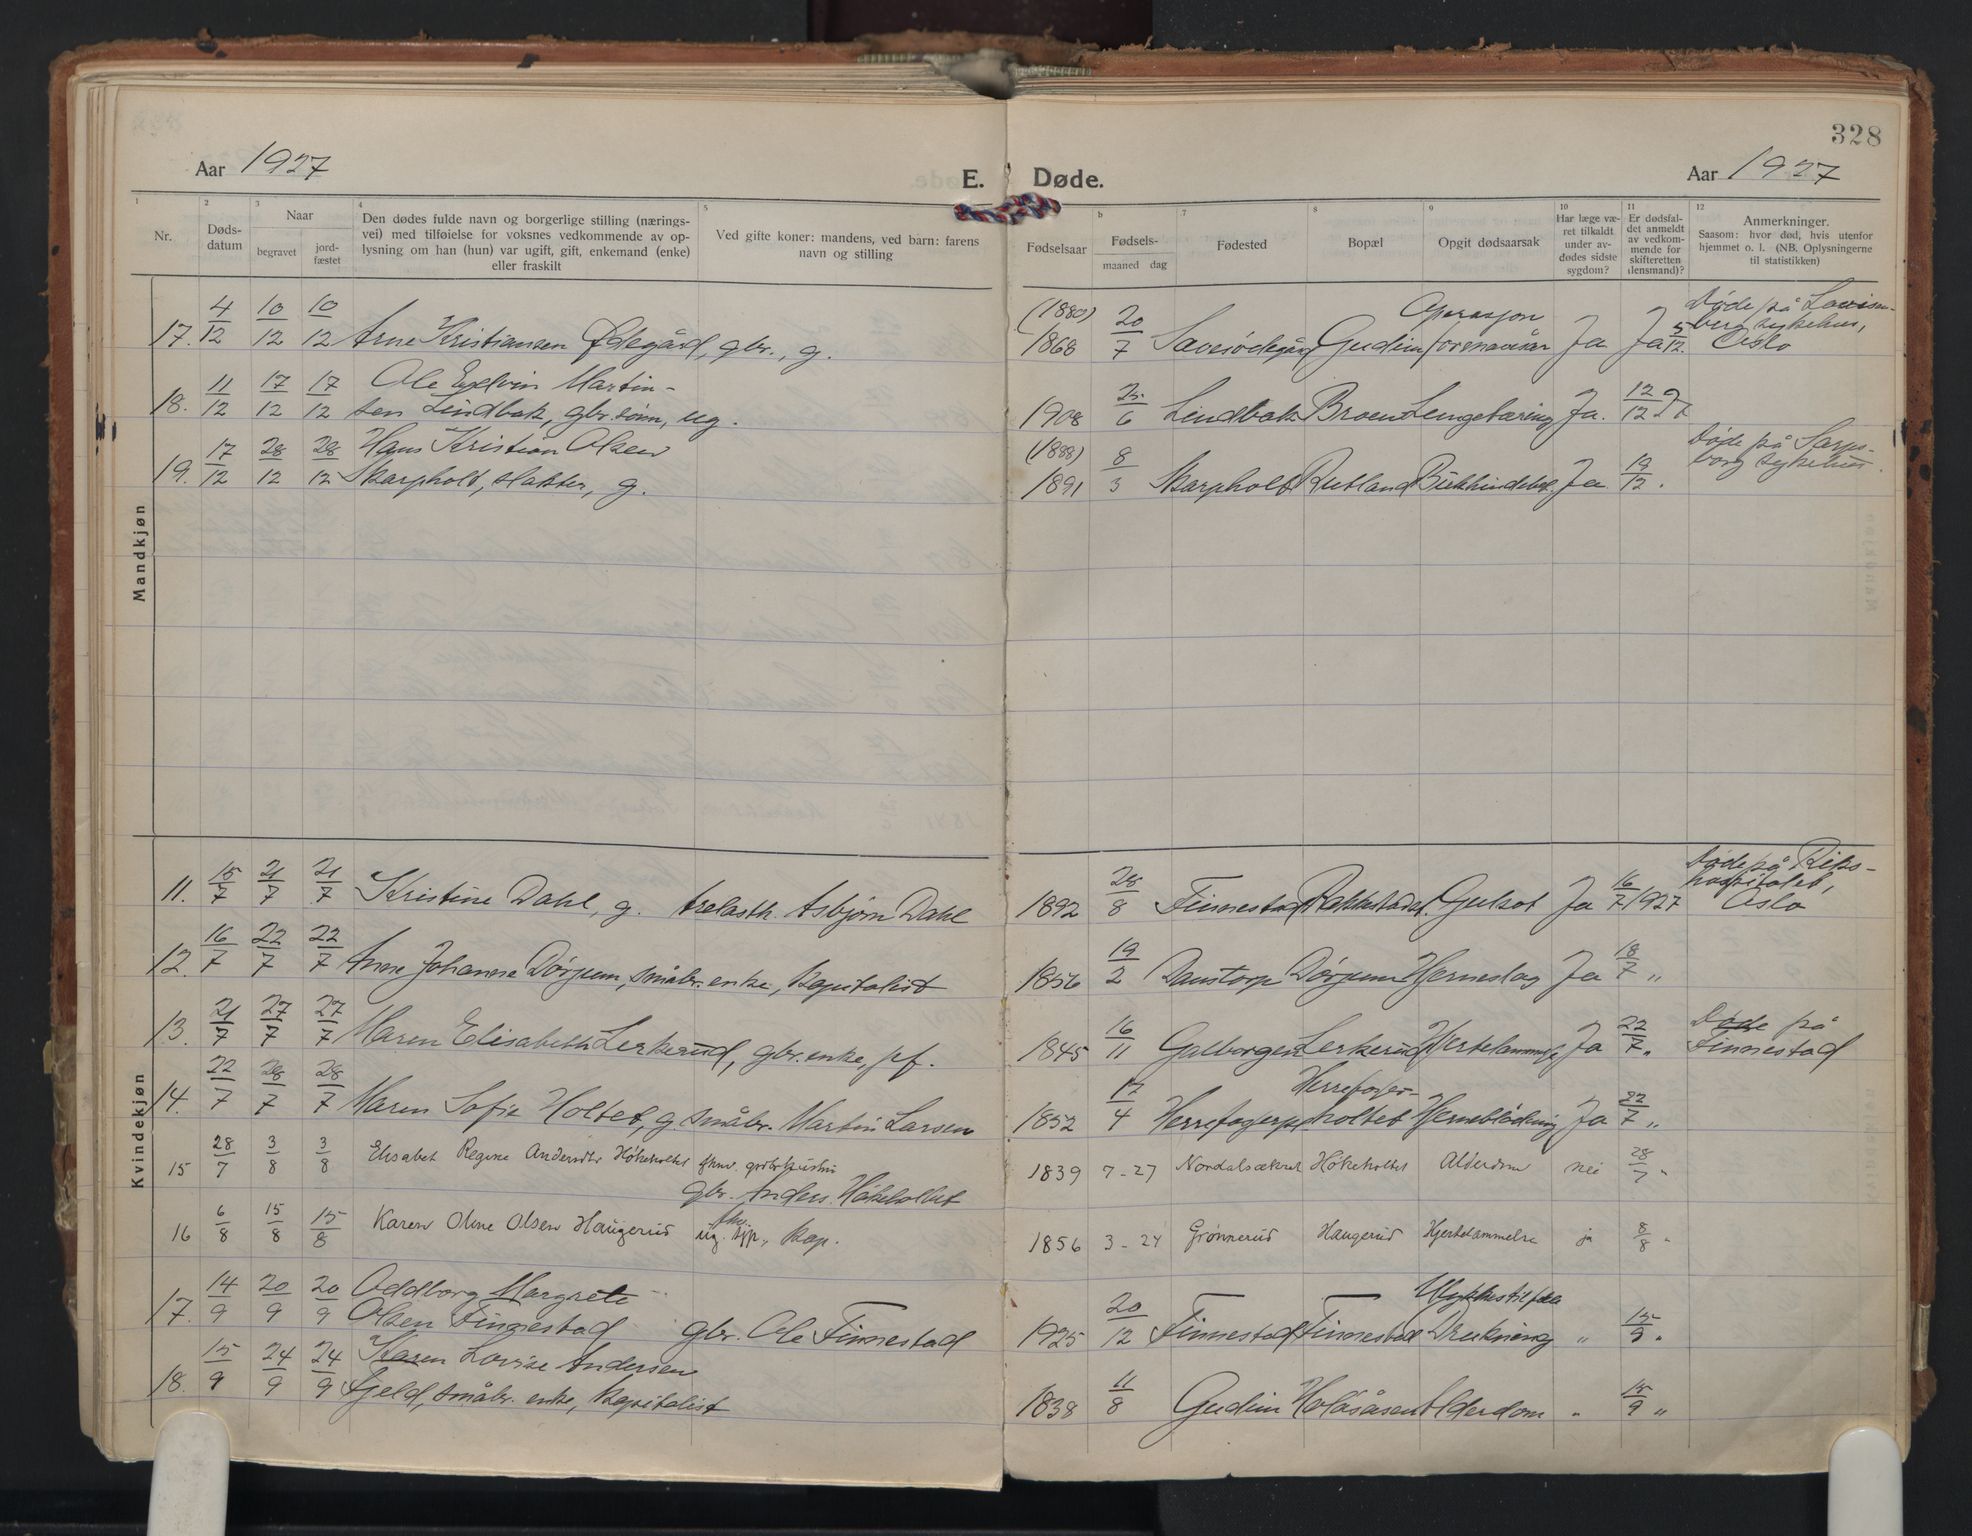 328
Aar 1927
E. Døde.
Aar 1927
1 2 3 4 5 b 7 8 9 10 11 12
Nr.
Dødsdatum
Naar
begravet
jordfæstet
Den dødes fulde navn og borgerlige stilling (nærings-
vei) med tilføielse for voksnes vedkommende av op-
lysning om han (hun) var ugift, gift, enkemand (enke)
eller fraskilt
Ved gifte koner: mandens, ved barn: farens
navn og stilling
Fødselsaar
Fødsels-
maaned dag
Fødested
Bopæl
Opgit dødsaarsak
Har læge væ-
ret tilkaldt
under av-
dødes sidste
sygdom?
Er dødsfal-
det anmeldt
av vedkom-
mende for
skifteretten
(lensmand)?
Anmerkninger.
Saasom: hvor død, hvis utenfor
hjemmet o. l. (NB. Oplysningerne
til statistikken)
Mandkjøn
17. 4/12 10/12 10/12 Arne Kristiansen Ødegård, gbr., g. (1880) 1868 20/7 Gudim Operasjon Ja Ja 5/12. Døde på Lovisen-
berg sykehus,
Oslo
18. 11/12 17/12 17/12 Ole Edvin Martin-
sen Lindbak, gbr.sønn, ug. 1908 25/6 Lindbak Broen Lungetæring Ja. 12/12 27
19. 17/12 28/12 28/12 Hans Kristian Olsen
Skarpholt, slakter, g. (1888) 1891 8/3 Skarpholt Rutland Ja 19/12. Døde på Sarps-
borg sykehus.
Kvindekjøn
11. 15/7 21/7 21/7 Kristine Dahl, g. trelasth. Asbjørn Dahl 1892 28/8 Finnestad Rakkestadst. Gulsot Ja 16/7 1927 Døde på Riks-
hospitalet,
Oslo
12. 16/7 22/7 22/7 Anne Johanne Dørjum, småbr. enke, kapitalist 1856 19/2 Danstorp Dørjum Hjerneslag Ja 18/7 "
13. 21/7 27/7 27/7 Maren Elisabeth Lerkerud, gbr. enke, pf. 1845 16/11 Galborgen Lerkerud Hjertelammelse Ja 22/7 " Døde på
Finnestad
14. 22/7 28/7 28/7 Maren Sofie Holtet, g. småbr. Martin Larsen 1852 17/4 Herrefoger-
holtet Hjerneblødning Ja 22/7 "
15 28/7 3/8 3/8 Elisabet Regine Andersdtr Høkeholtet
gbr. Anders Høkeholtet 1839 7-27 Høkeholtet Alderdom nei 28/7 "
16 6/8 15/8 15/8 Karen Oline Olsen Haugerud ug. kap. 1856 3-24 Grønnerud Haugerud Hjertelammelse ja 8/8 "
17. 14/9 20/9 20/9 Oddborg Margrete
Olsen Finnestad gbr. Ole Finnestad 1925 20/12 Finnestad Finnestad Ulykkestilfelle
Drukning " 15/9 "
18. 15/9 24/9 24/9 Karen Lovise Andersen
Fjeld, småbr. enke, kapitalist 1838 11/8 Gudim Holåsåsen Alderdom " 15/9 "